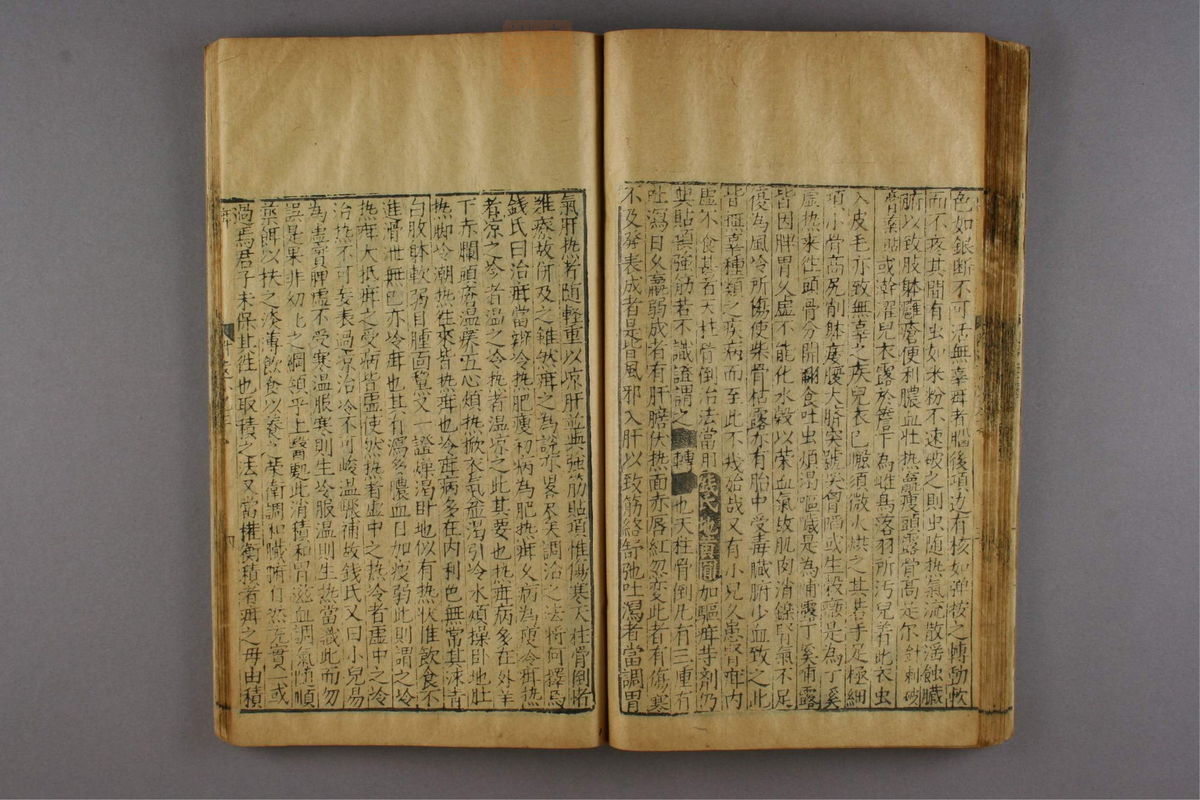 色如銀断不可活無辜者腦後項邊有核如弹按之轉動軟
而不疼其間有虫如米粉不速破之則虫随热氣流散滛蝕臟
腑以致肢躰癰瘡便利膿血壮热羸瘦頭露骨高是尓針刺破
膏薬貼或浣濯兒衣露於簷下為雌鳥落羽所汚兒着此衣虫
入皮毛亦致無辜之疾兒衣已服須微火烘之其手足極細
項小骨高尻削躰痿腹大臍突號哭胷陷或生穀癥是為丁奚
虚热来徃頭骨分開翻食吐虫煩渇嘔噦是為哺露丁奚哺露
皆因脾胃乆虚不能化水穀以荣血氣故肌肉消鑠腎氣不足
復為風冷所傷使柴骨枯露亦有胎中受毒臟腑少血致之此
皆無辜種類之疾病而至此不㦲殆㦲又有小兒久患腎疳内
虚不食甚者天柱骨倒治法當用熊氏地黄圓加驅疳䓁剤仍
貼項強筋若不識證謂之轉也天柱骨倒凡有三種有
吐瀉日乆羸弱成者有肝膽伏热面赤唇紅忽変此者有傷寒
不及發表成者是皆風邪入肝以致筋絡舒弛吐瀉者當調胃
氣肝热者随輕重以凉肝並與強筋貼項惟傷寒天柱骨倒将
难療故併及之雖然疳之為說亦畧尽矣調治之法将何擇焉
錢氏曰治疳當辨冷热肥瘦初病為肥热疳乆病為瘦冷疳热
者凉之冷者温之冷热者温凉之此其要也热疳病多在外羊
下赤爛頭瘡温痒五心煩热掀衣氣麄渇引冷水煩操卧地肚
热脚冷潮热徃来皆热疳也冷疳病多在内利色無常其沫青
白肢躰軟弱目腫面黧又一證燥渇卧地似有热状惟飲食不
進滑泄無已亦冷疳也其有瀉多膿血日加瘦弱此則謂之冷
热疳大抵疳之受病皆虚使然热者虚中之热冷者虚中之冷
治热不可妄表過凉治冷不可峻温驟補故錢氏又曰小兒易
為虚實脾虚不受寒温服寒則生冷服温則生热當識此而勿
悞是果非幼幼之綱領乎上醫處此消積和胃滋血調氣随順
藥餌以扶之淡薄飲食以養之荣衛調和臟腑自然充實一或
過焉君子未保其徃也取積之法又當權衡積者疳之毋由積